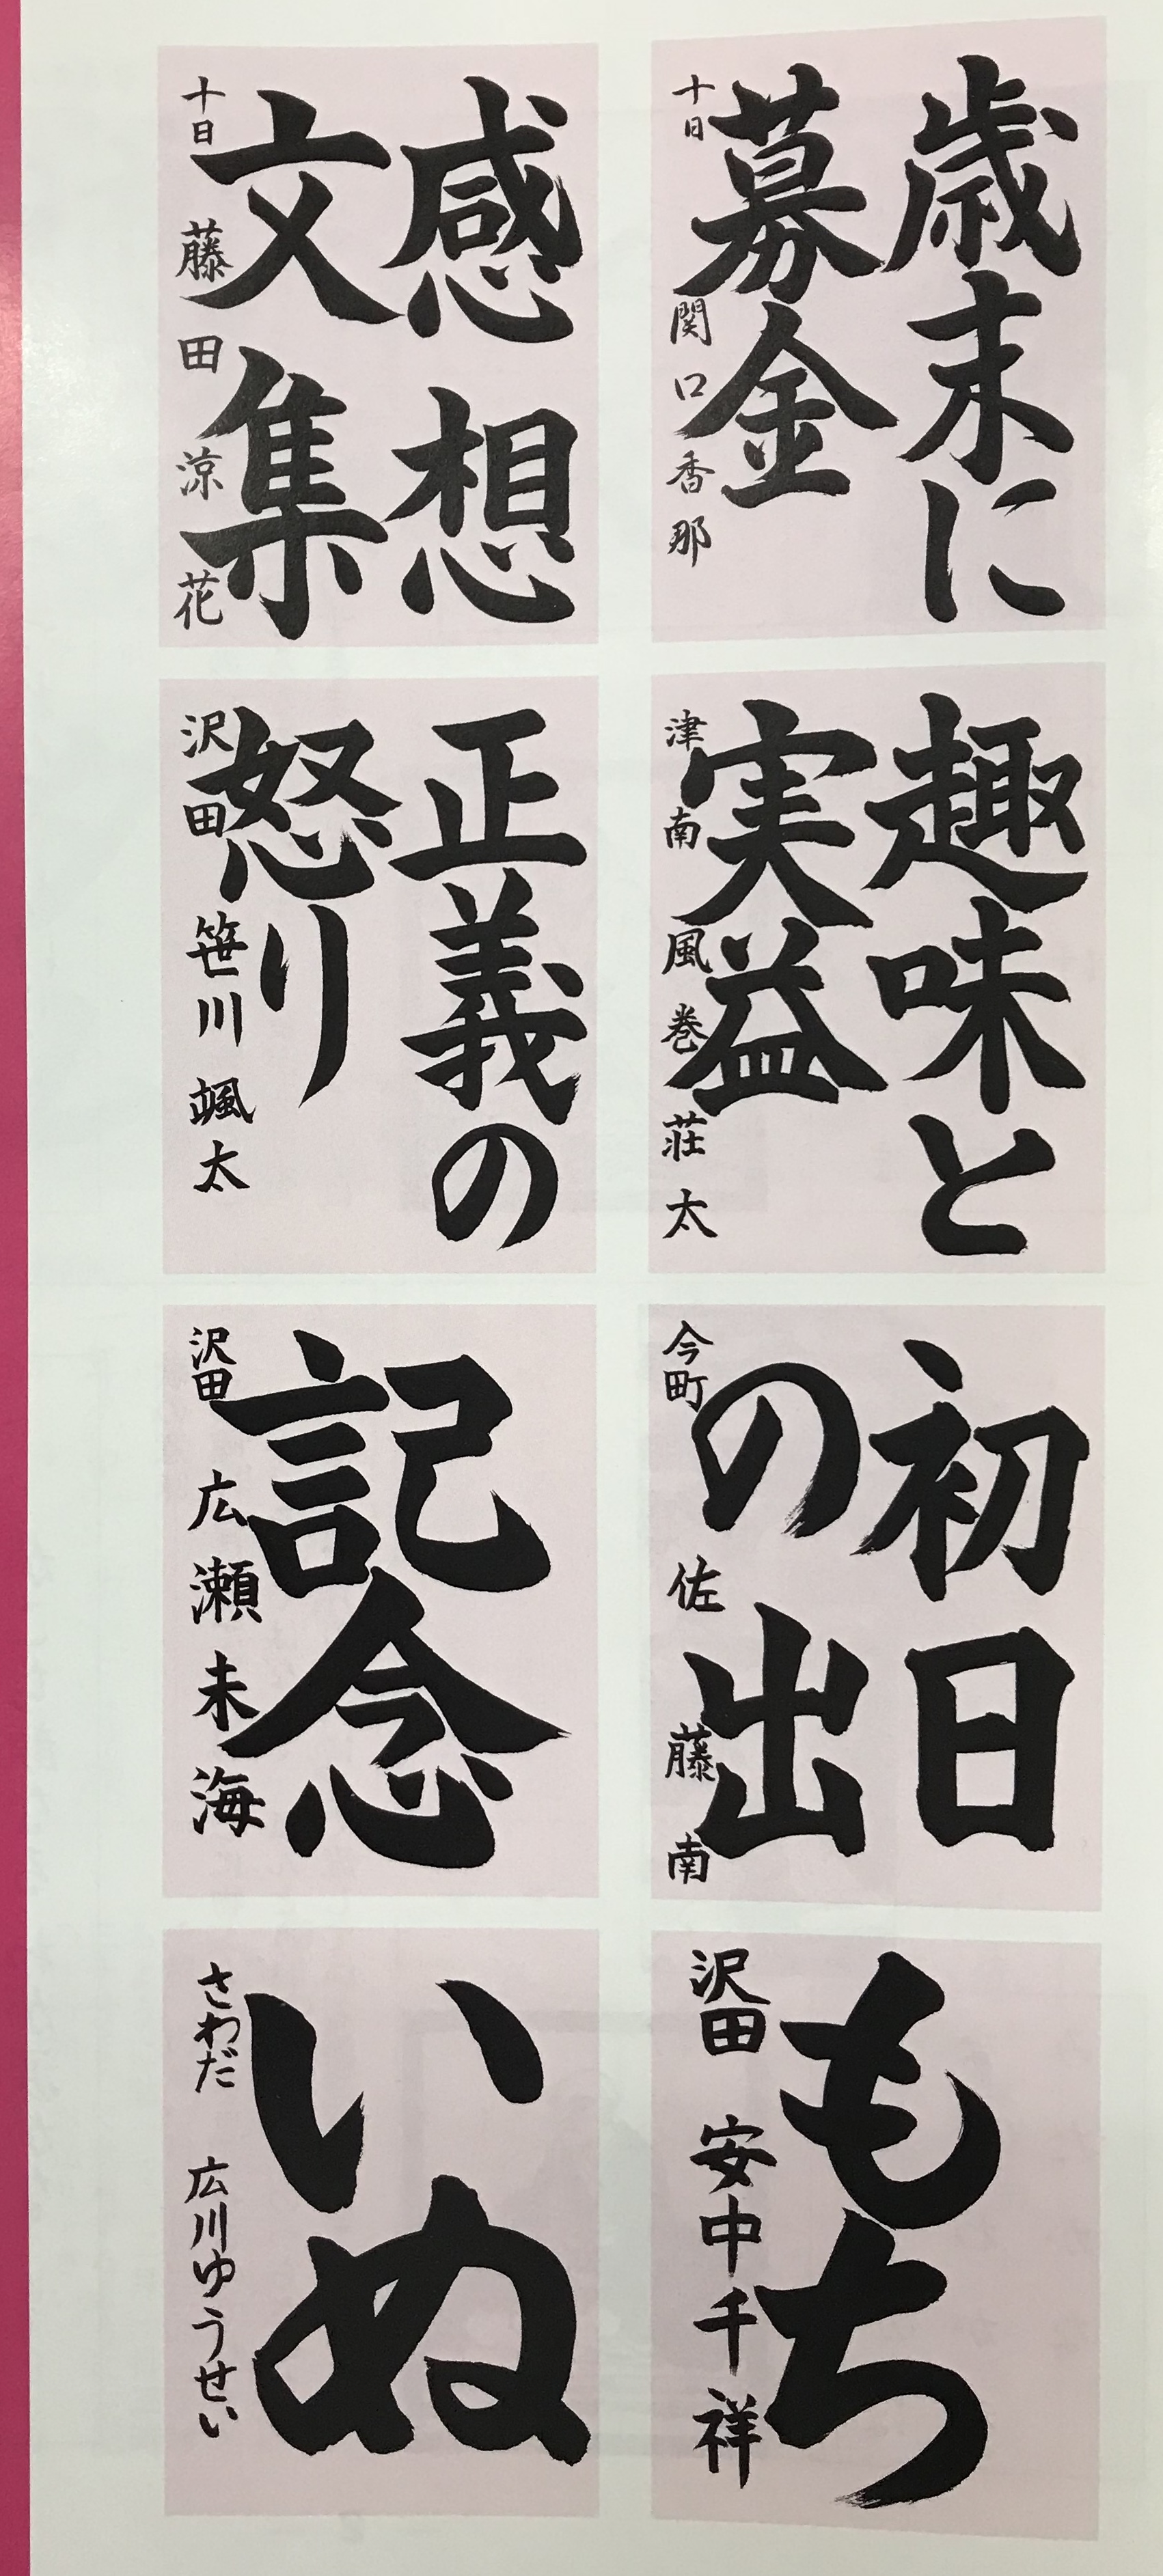 歳末に
募金
十日 関口香那
感想
文集
十日 藤田涼花
趣味と
実益
津南 風巻荘太
正義の
怒り
沢田 笹川颯太
初日
の出
今町 佐藤南
記念
沢田 広瀬未海
もち
沢田 安中千祥
いぬ
さわだ 広川ゆうせい